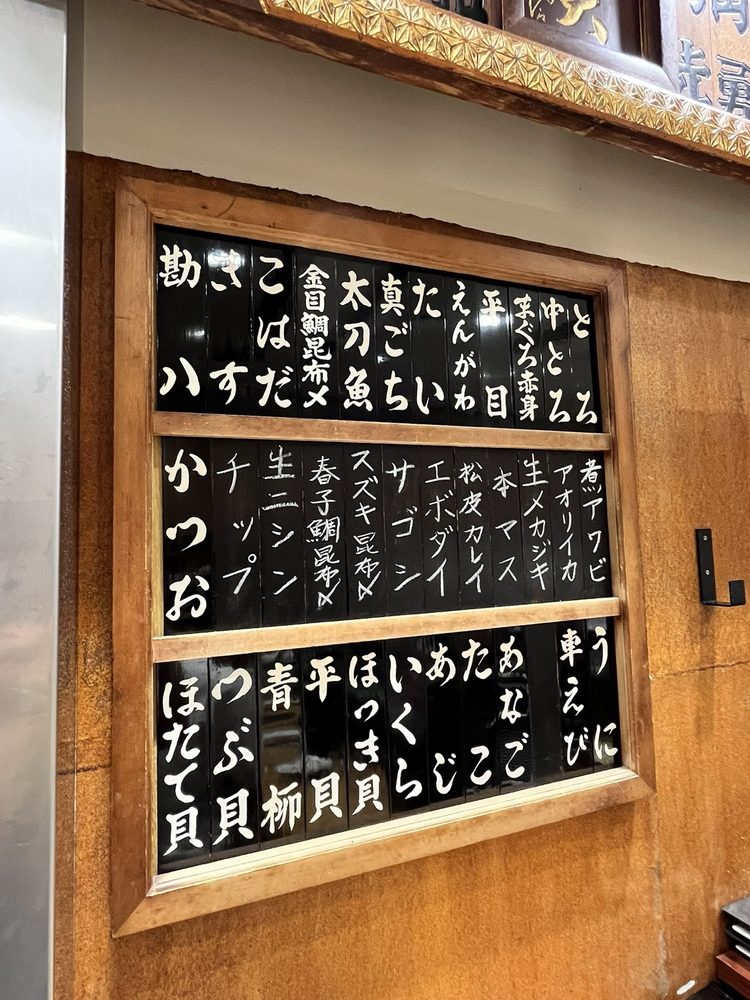 とろ
中とろ
まぐろ赤身
平目
えんがわ
たい
真ごち
太刀魚
金目鯛昆布〆
こはだ
きす
勘八
煮アワビ
アオリイカ
生メカジキ
本マス
松皮カレイ
エボダイ
サゴシ
スズキ昆布〆
春子鯛昆布〆
生ニシン
チップ
かつお
うに
車えび
あなご
たこ
あじ
いくら
ほっき貝
平貝
青柳
つぶ貝
ほたて貝